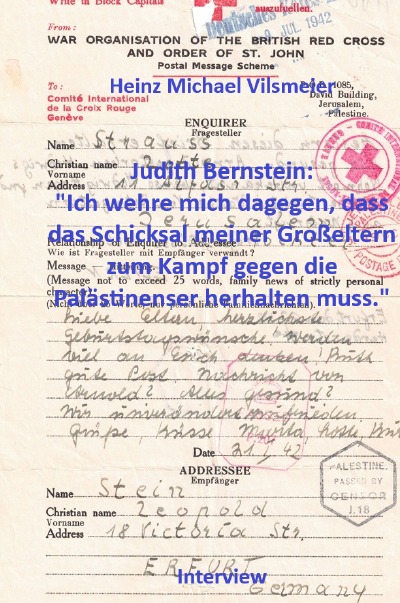 Write in Block Capitals
auszufüllen.
Deutsches
9 JUL 1942
From:
WAR ORGANISATION OF THE BRITISH RED CROSS
AND ORDER OF ST. JOHN
Postal Message Scheme
To:
Comité International
de la Croix Rouge
Genève
1085,
David Building,
Jerusalem,
Palestine.
Heinz Michael Vilsmeier
ENQUIRER
Fragesteller
Name Strauss
Christian name
Vorname
Address 11 Str.
Jerusalem
Judith Bernstein:
"Ich wehre mich dagegen, dass
das Schicksal meiner Großeltern
zum Kampf gegen die
Palästinenser herhalten muss."
Relationship of Enquirer to Addressee
Wie ist Fragesteller mit Empfänger verwandt?
Message
(Message not to exceed 25 words, family news of strictly personal
character)
Liebe Eltern herzlichste
Geburtstagswünsche werden
viel an Erich denken! Ruth
gute Post. Nachricht von
? Alles gesund?
Wir unverändert zufrieden,
Grüße, Küsse
Date 21. 42
ADDRESSEE
Empfänger
Name Stein
Christian name Leopold
Vorname
Address 18 Victoria Str.
ERFURT
Germany
PALESTINE.
PASSED BY
CENSOR
J.18
Interview